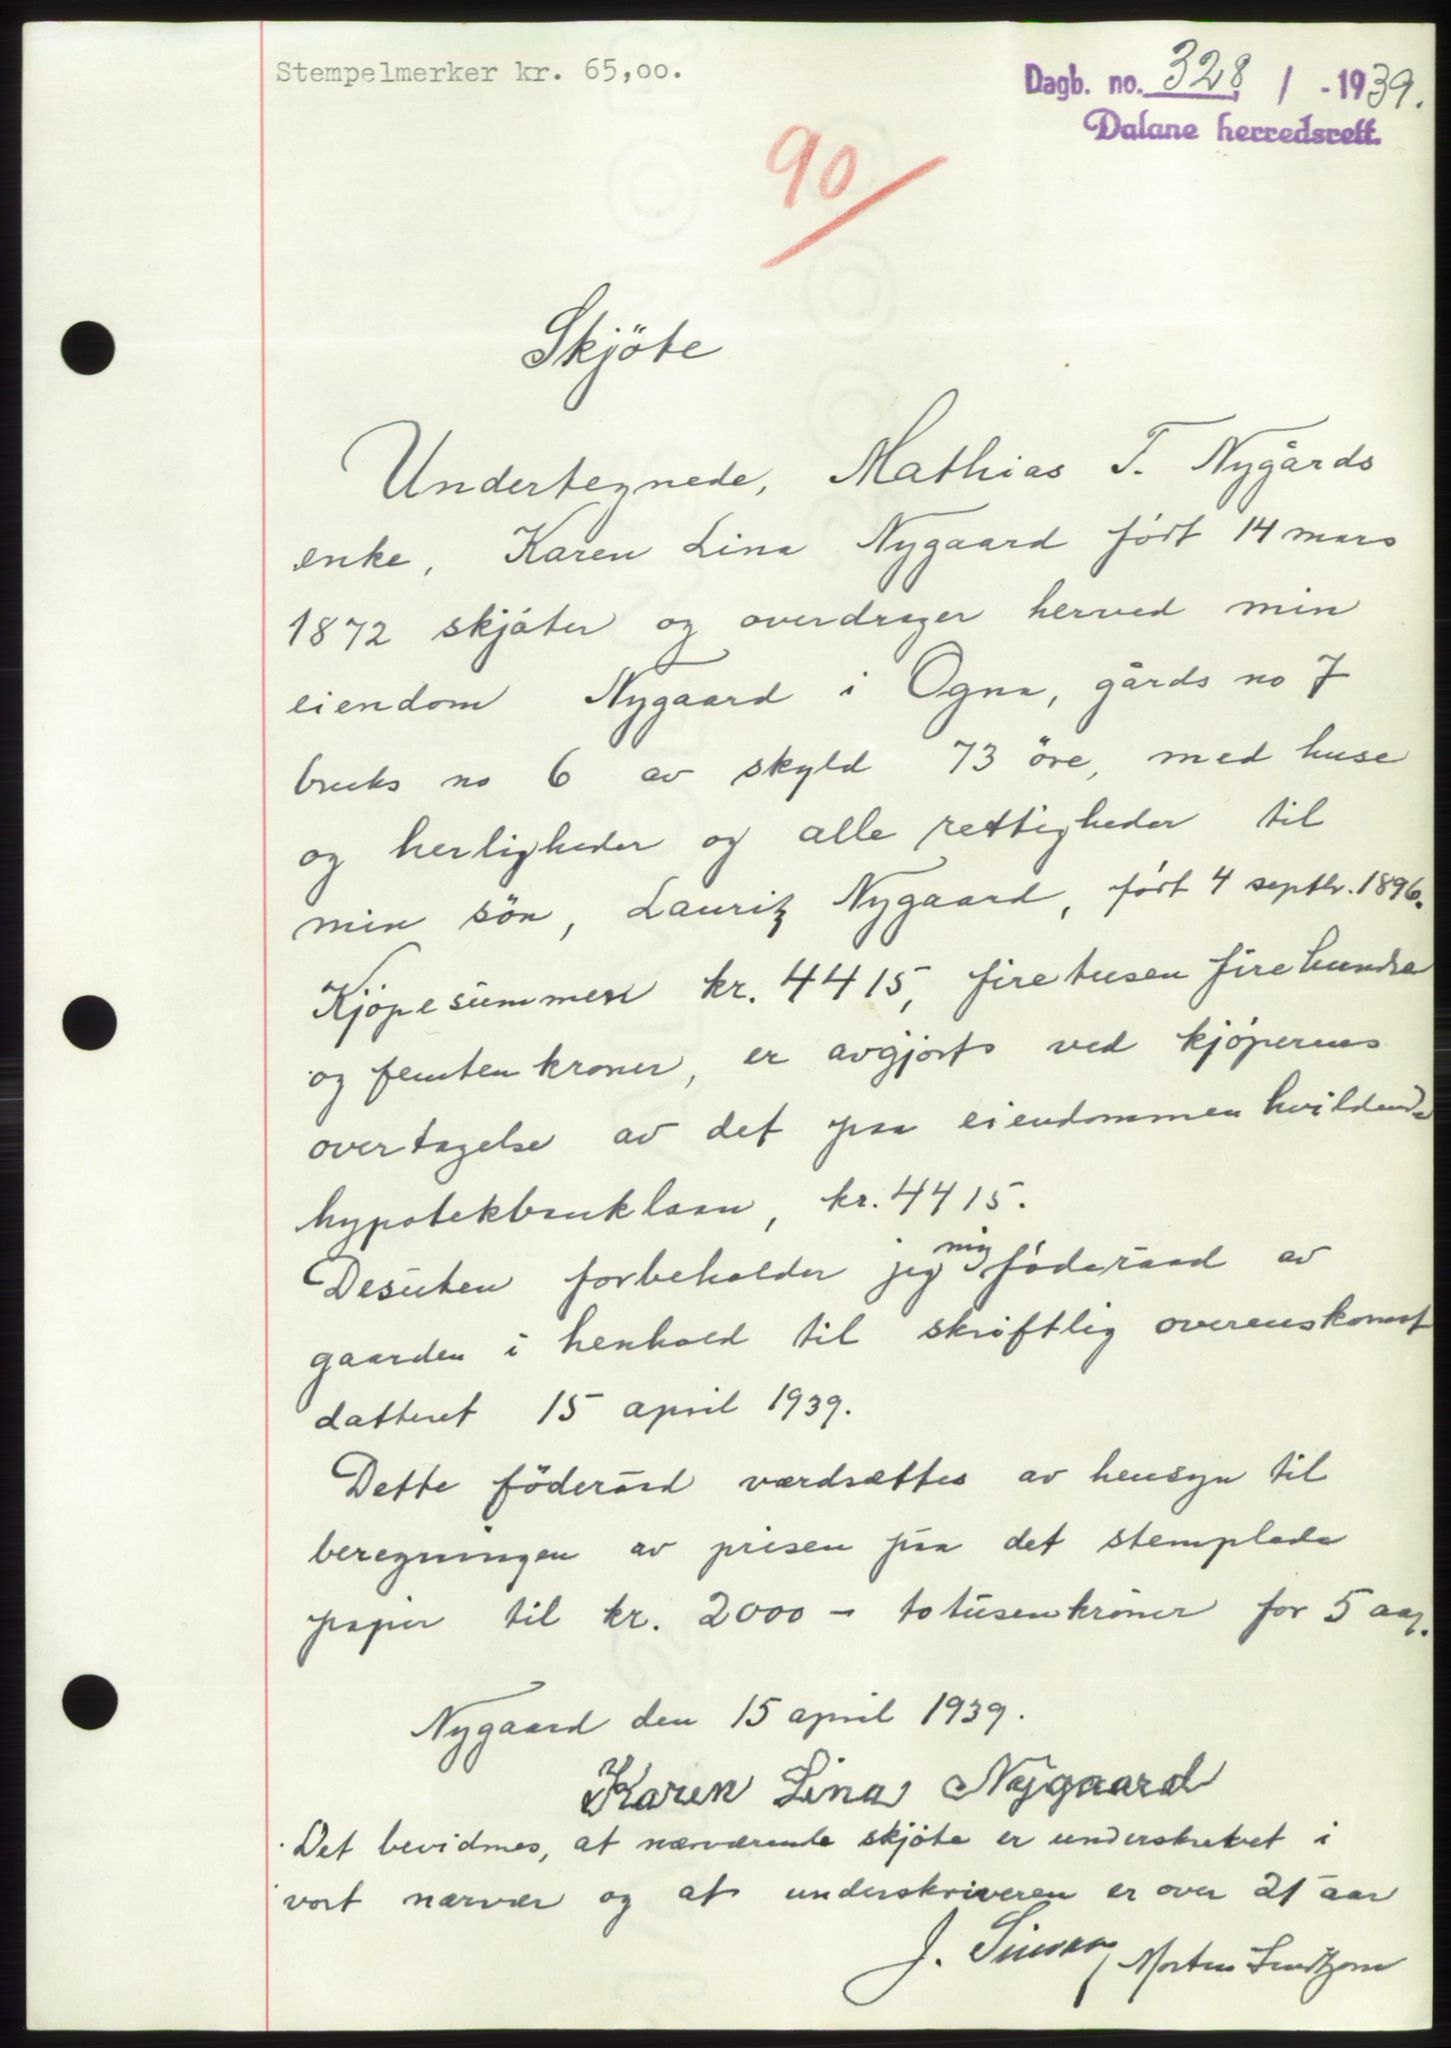 Stempelmerker kr. 65,00.
Dagb. no. 328 / - 1939.
Dalane herredsrett.
90
Skjöte
Undertegnede, Mathias T. Nygårds
enke, Karen Lina Nygaard född 14 mars
1872 skjöter og overdrager herved min
eiendom Nygaard i Ogna, gårds no 7
bruks no 6 av skyld 73 öre, med huse
og herligheder og alle rettigheder til
min sön, Lauritz Nygaard, född 4 septbr. 1896.
Kjöpesummen kr. 4415, firetusen firehundre
og femten kroner, er avgjorts ved kjöperens
overtagelse av det paa eiendommen hvilende
hypotekbanklaan, kr. 4415.
Desuten forbeholder jeg mig föderaad av
gaarden i henhold til skriftlig overenskomst
datteret 15 april 1939.
Dette föderåd værdsættes av hensyn til
beregningen av prisen paa det stemplede
papir til kr. 2000 - totusenkroner for 5 aar.
Nygaard den 15 april 1939.
Karen Lina Nygaard
Det bevidnes, at nærværende skjöte er underskrevet i
vort nærvær og at underskriveren er over 21 aar
J. Morten